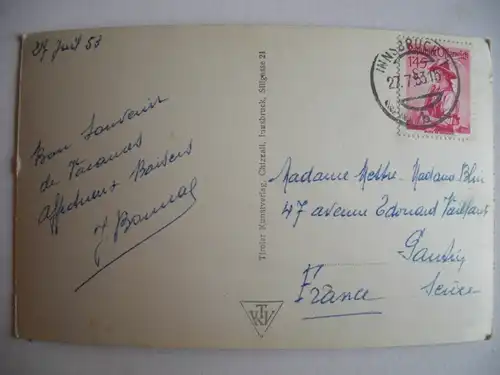 27 Juil 53
Bon Souvenir
de Vacances
affectueux Baisers
Tiroler Kunstverlag, Chizzali, Innsbruck, Sillgasse 21
TKV
INNSBRUCK
27.7.53.15
145
Madame Mettre. Madame Blin
47 avenue Edouard Vaillant
Pantin
Seine
France